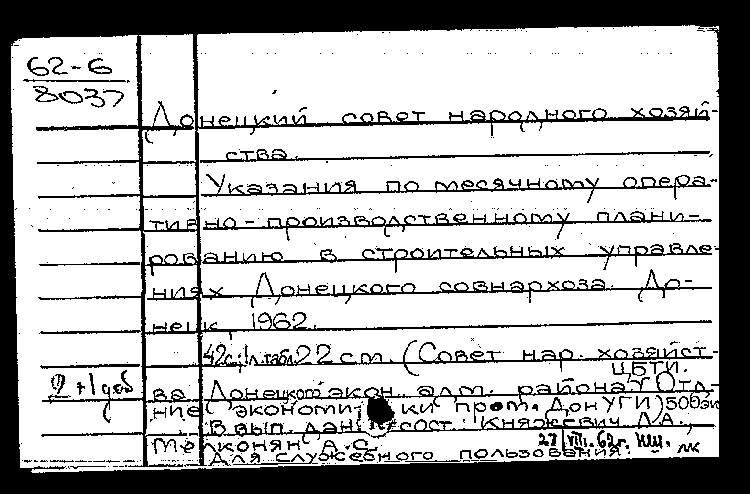 62-6
8037
Донецкий совет народного хозяй-
ства.
Указания по месячному опера-
тивно-производственному плани-
рованию в строительных управле-
ниях Донецкого совнархоза. До-
нецк, 1962.
42 с.; 1 л. табл. 22 см. (Совет нар. хозяйст-
ЦБТИ.
2+1 доб
ва Донецкого экон. адм. района. Отд-
ние экономи ки пром. ДонУГИ) 500 эк
В вып. дан.: сост.: Княжевич Л.А.,
Мелконян А.С.
27/VIII.62г.
Для служебного пользования.